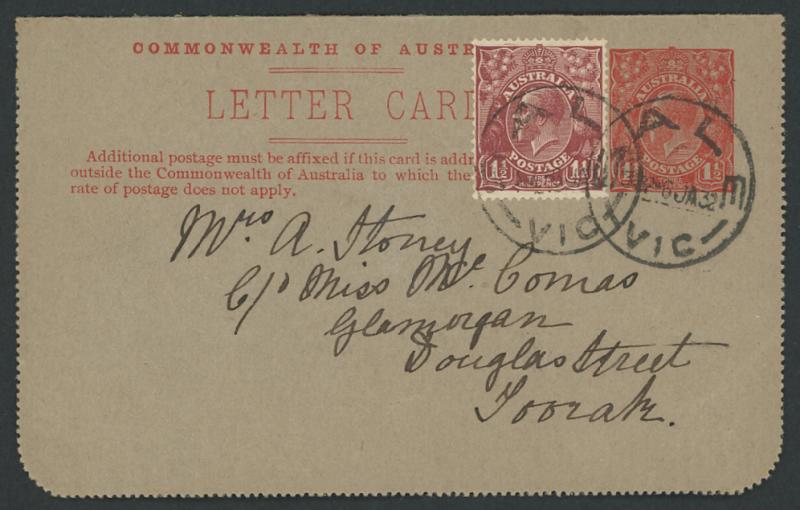 COMMONWEALTH OF AUSTR
LETTER CARD
Additional postage must be affixed if this card is addr
outside the Commonwealth of Australia to which the
rate of postage does not apply.
AUSTRALIA
POSTAGE
1½ 1½
AUSTRALIA
POSTAGE
1½ 1½
SALE
6 JA 32
VIC
VIC
Mrs A. Stoney
C/o Miss Mc Comas
Glamorgan
Douglas Street
Toorak.